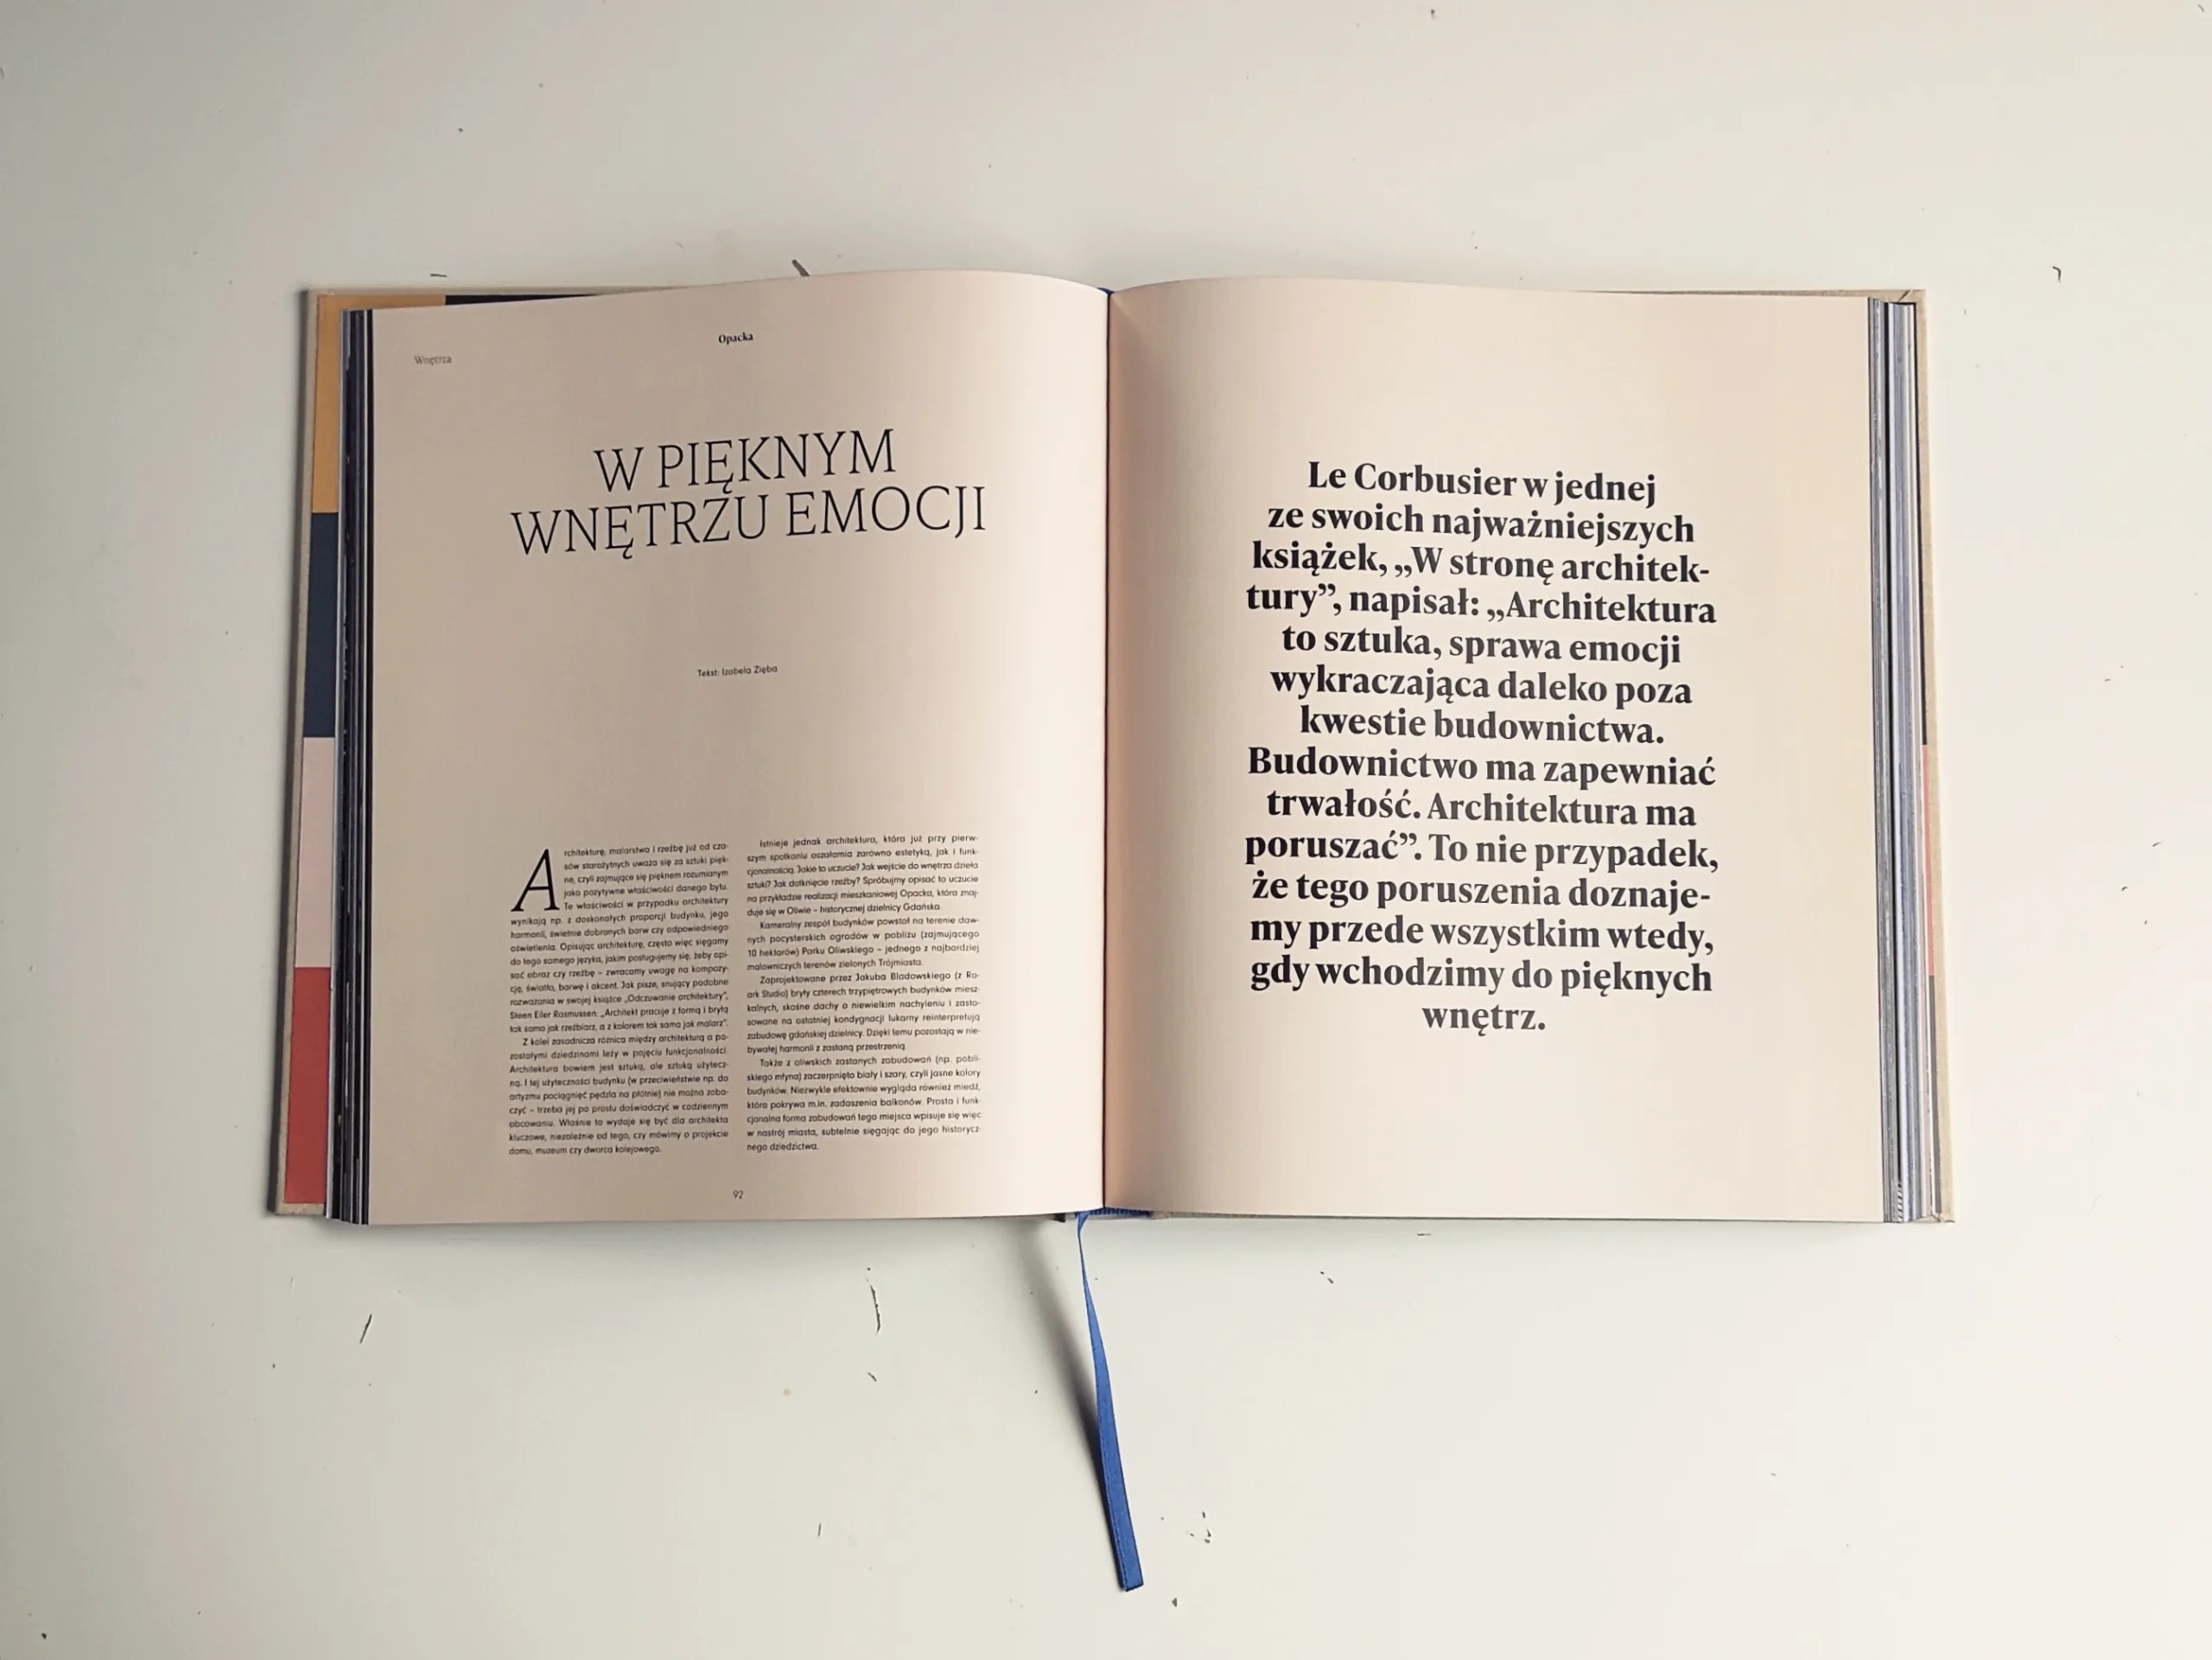 Opacka
Wnętrza
W PIĘKNYM
WNĘTRZU EMOCJI
Tekst: Izabela Zięba
Architekturę, malarstwo i rzeźbę już od cza-
sów starożytnych uważa się za sztuki pięk-
ne, czyli zajmujące się pięknem rozumianym
jako pozytywne właściwości danego bytu.
Te właściwości w przypadku architektury
wynikają np. z doskonałych proporcji budynku, jego
harmonii, świetnie dobranych barw czy odpowiedniego
oświetlenia. Opisując architekturę, często więc sięgamy
do tego samego języka, jakim posługujemy się, żeby opi-
sać obraz czy rzeźbę – zwracamy uwagę na kompozy-
cję, światło, barwę i akcent. Jak pisze, snujący podobne
rozważania w swojej książce „Odczuwanie architektury”,
Steen Eiler Rasmussen: „Architekt pracuje z formą i bryłą
tak samo jak rzeźbiarz, a z kolorem tak samo jak malarz”.
Z kolei zasadnicza różnica między architekturą a po-
zostałymi dziedzinami leży w pojęciu funkcjonalności.
Architektura bowiem jest sztuką, ale sztuką użytecz-
ną. I tej użyteczności budynku (w przeciwieństwie np. do
artyzmu pociągnięć pędzla na płótnie) nie można zoba-
czyć – trzeba jej po prostu doświadczyć w codziennym
obcowaniu. Właśnie to wydaje się być dla architekta
kluczowe, niezależnie od tego, czy mówimy o projekcie
domu, muzeum czy dworca kolejowego.
Istnieje jednak architektura, która już przy pierw-
szym spotkaniu oszałamia zarówno estetyką, jak i funk-
cjonalnością. Jakie to uczucie? Jak wejście do wnętrza dzieła
sztuki? Jak dotknięcie rzeźby? Spróbujmy opisać to uczucie
na przykładzie realizacji mieszkaniowej Opacka, która znaj-
duje się w Oliwie – historycznej dzielnicy Gdańska.
Kameralny zespół budynków powstał na terenie daw-
nych pocysterskich ogrodów w pobliżu (zajmującego
10 hektarów) Parku Oliwskiego – jednego z najbardziej
malowniczych terenów zielonych Trójmiasta.
Zaprojektowane przez Jakuba Bladowskiego (z Ro-
ark Studio) bryły czterech trzypiętrowych budynków miesz-
kalnych, skośne dachy o niewielkim nachyleniu i zasto-
sowane na ostatniej kondygnacji lukarny reinterpretują
zabudowę gdańskiej dzielnicy. Dzięki temu pozostają w nie-
bywałej harmonii z zastaną przestrzenią.
Także z oliwskich zastanych zabudowań (np. pobli-
skiego młyna) zaczerpnięto biały i szary, czyli jasne kolory
budynków. Niezwykle efektownie wygląda również miedź,
która pokrywa m.in. zadaszenia balkonów. Prosta i funk-
cjonalna forma zabudowań tego miejsca wpisuje się więc
w nastrój miasta, subtelnie sięgając do jego historycz-
nego dziedzictwa.
92
Le Corbusier w jednej
ze swoich najważniejszych
książek, „W stronę architek-
tury”, napisał: „Architektura
to sztuka, sprawa emocji
wykraczająca daleko poza
kwestie budownictwa.
Budownictwo ma zapewniać
trwałość. Architektura ma
poruszać”. To nie przypadek,
że tego poruszenia doznaje-
my przede wszystkim wtedy,
gdy wchodzimy do pięknych
wnętrz.